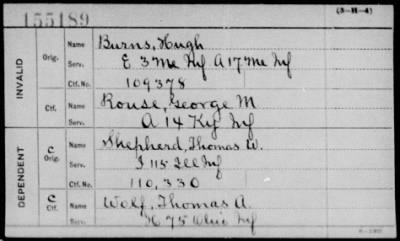 155189
(3-H-4)
INVALID
Orig. Name Burns, Hugh
Serv. E 3 Me Inf A 17 Me Inf
Ctf. No. 109378
Ctf. Name Rouse, George M
Serv. A 14 Ky Inf
DEPENDENT
C Orig. Name Shepherd, Thomas W.
Serv. I 115 Ill Inf
Ctf. No. 110,330
C Ctf. Name Wolf, Thomas A.
Serv. 75 Ohio Inf